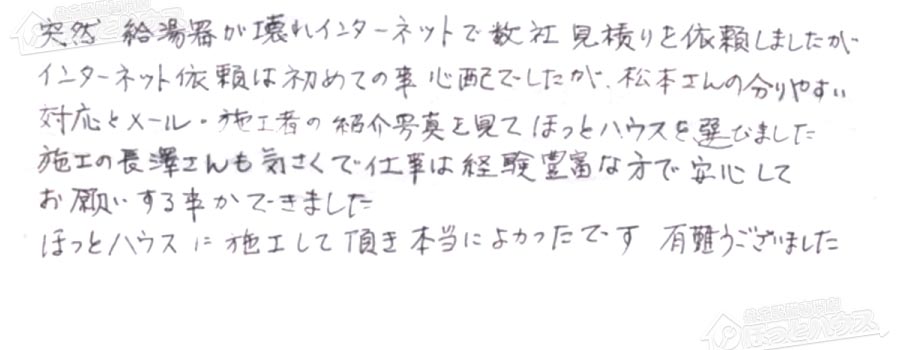 突然 給湯器が壊れインターネットで数社見積りを依頼しましたが
インターネット依頼は初めての事心配でしたが、松本さんの分りやすい
対応とメール・施工者の紹介写真を見てほっとハウスを選びました
施工の長澤さんも気さくで仕事は経験豊富な方で安心して
お願いする事ができました
ほっとハウスに施工して頂き本当によかったです 有難うございました
ほっとハウス